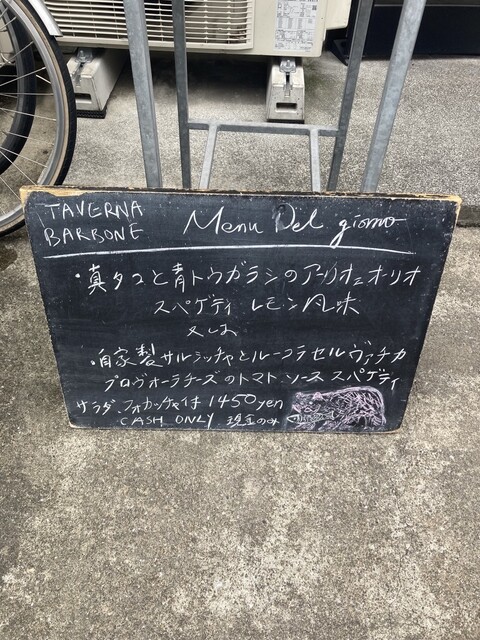 TAVERNA
BARBONE
Menu Del giorno
・真タコと青トウガラシのアーリオエオーリオ
スパゲティ レモン風味
又は
・自家製サルシッチャとルーコラセルヴァチカ
プロヴォーラチーズのトマトソース スパゲティ
サラダ、フォカッチャ付 1450yen
CASH ONLY 現金のみ